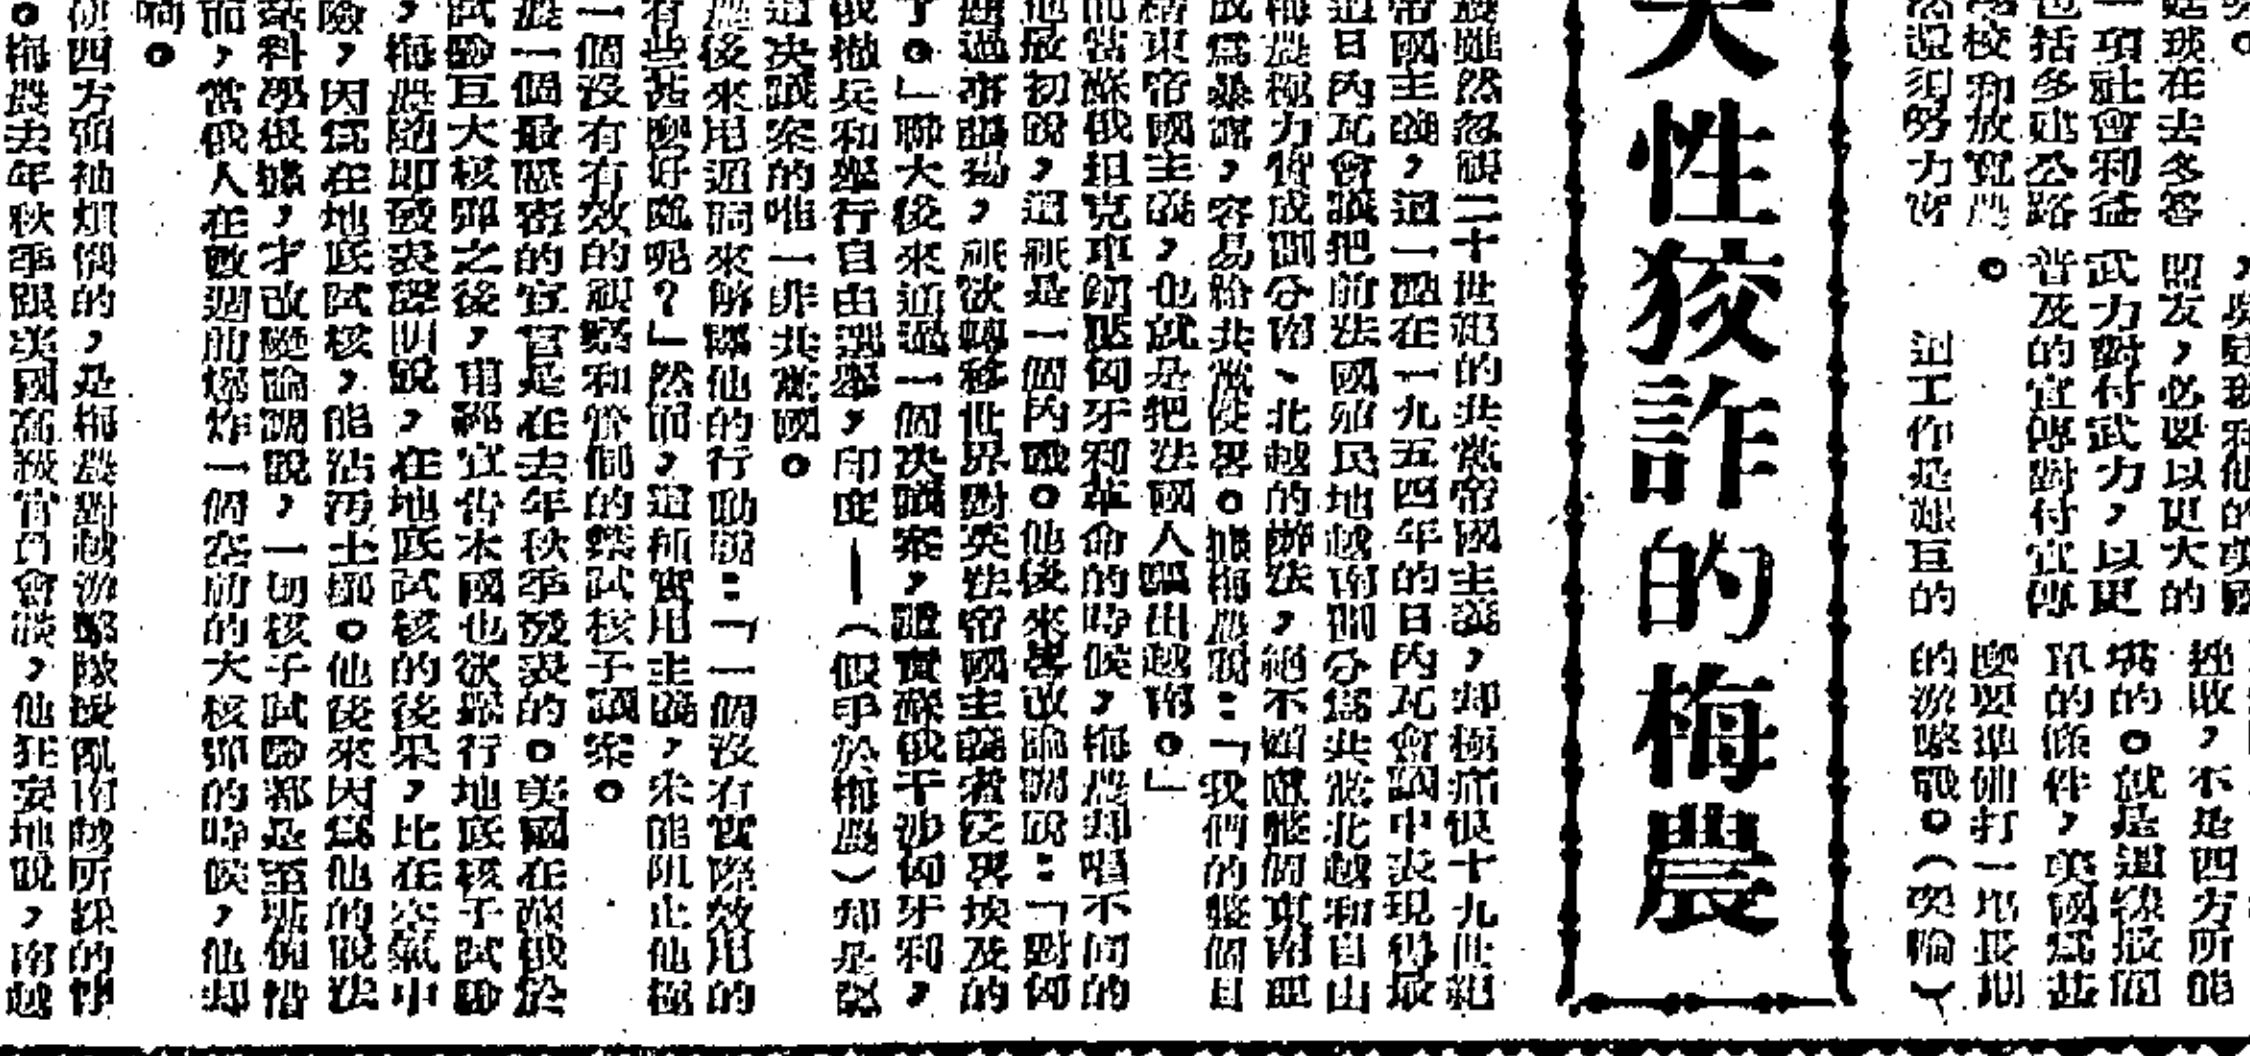 在去多
一項社會利益
也括多建公路
學校和放寬農
然還須努力實
盟友，必要以更大的
武力對付武力，以更
普及的宣傳對付宣傳
。
這工作是艱巨的
挫敗，不是四方所能
的。就是這樣
的條件，美國為甚
麼要準備打一塲長期
的游擊戰。（奕倫）
天性狡詐的梅農
農雖然忽視二十世紀的共黨帝國主義，却極痛恨十九世紀
帝國主義，這一點在一九五四年的日內瓦會議中表現得最
這日內瓦會議把前法國殖民地越南間分為共黨北越和自由
梅農極力贊成間分南、北越的辦法，絕不顧慮整個東南亞
成為暴露，容易給共黨侵畧。據梅農說：「我們的整個目
結束帝國主義，也就是把法國人驅出越南。」
而當蘇俄坦克車鎮壓匈牙利革命的時候，梅農却唱不同的
他最初說，這祇是一個內戰。他後來畧改論調說：「對匈
題過事張揚，祇欲轉移世界對英法帝國主義者侵畧埃及的
了。」聯大後來通過一個決議案，譴責蘇俄干涉匈牙利，
俄撤兵和舉行自由選舉，印度—（假手於梅農）却是惡
這决議案的唯一非共黨國。
農後來用這個來解釋他的行動說：「一個沒有實際效用的
有些甚麼好處呢？」然而，這種實用主義，未能阻止他極
一個沒有有效的視察和管制的禁試核子議案。
農一個最隱密的宣言是在去年秋季發表的。美國在蘇俄於
試驗巨大核彈之後，甫鄭宣告本國也欲舉行地底核子試驗
，梅農隨即發表聲明說，在地底試核的後果，比在空氣中
險，因為在地底試核，能沾汚土壤。他後來因為他的說法
科學根據，才改變論調說，一切核子試驗都是至堪惋惜
而，當俄人在數週前爆炸一個空前的大核彈的時候，他却
响。
使四方領袖煩惱的，是梅農對越游擊隊侵亂南越所採的
。梅農去年秋季跟美國高級官員會談，他狂妄地說，南越